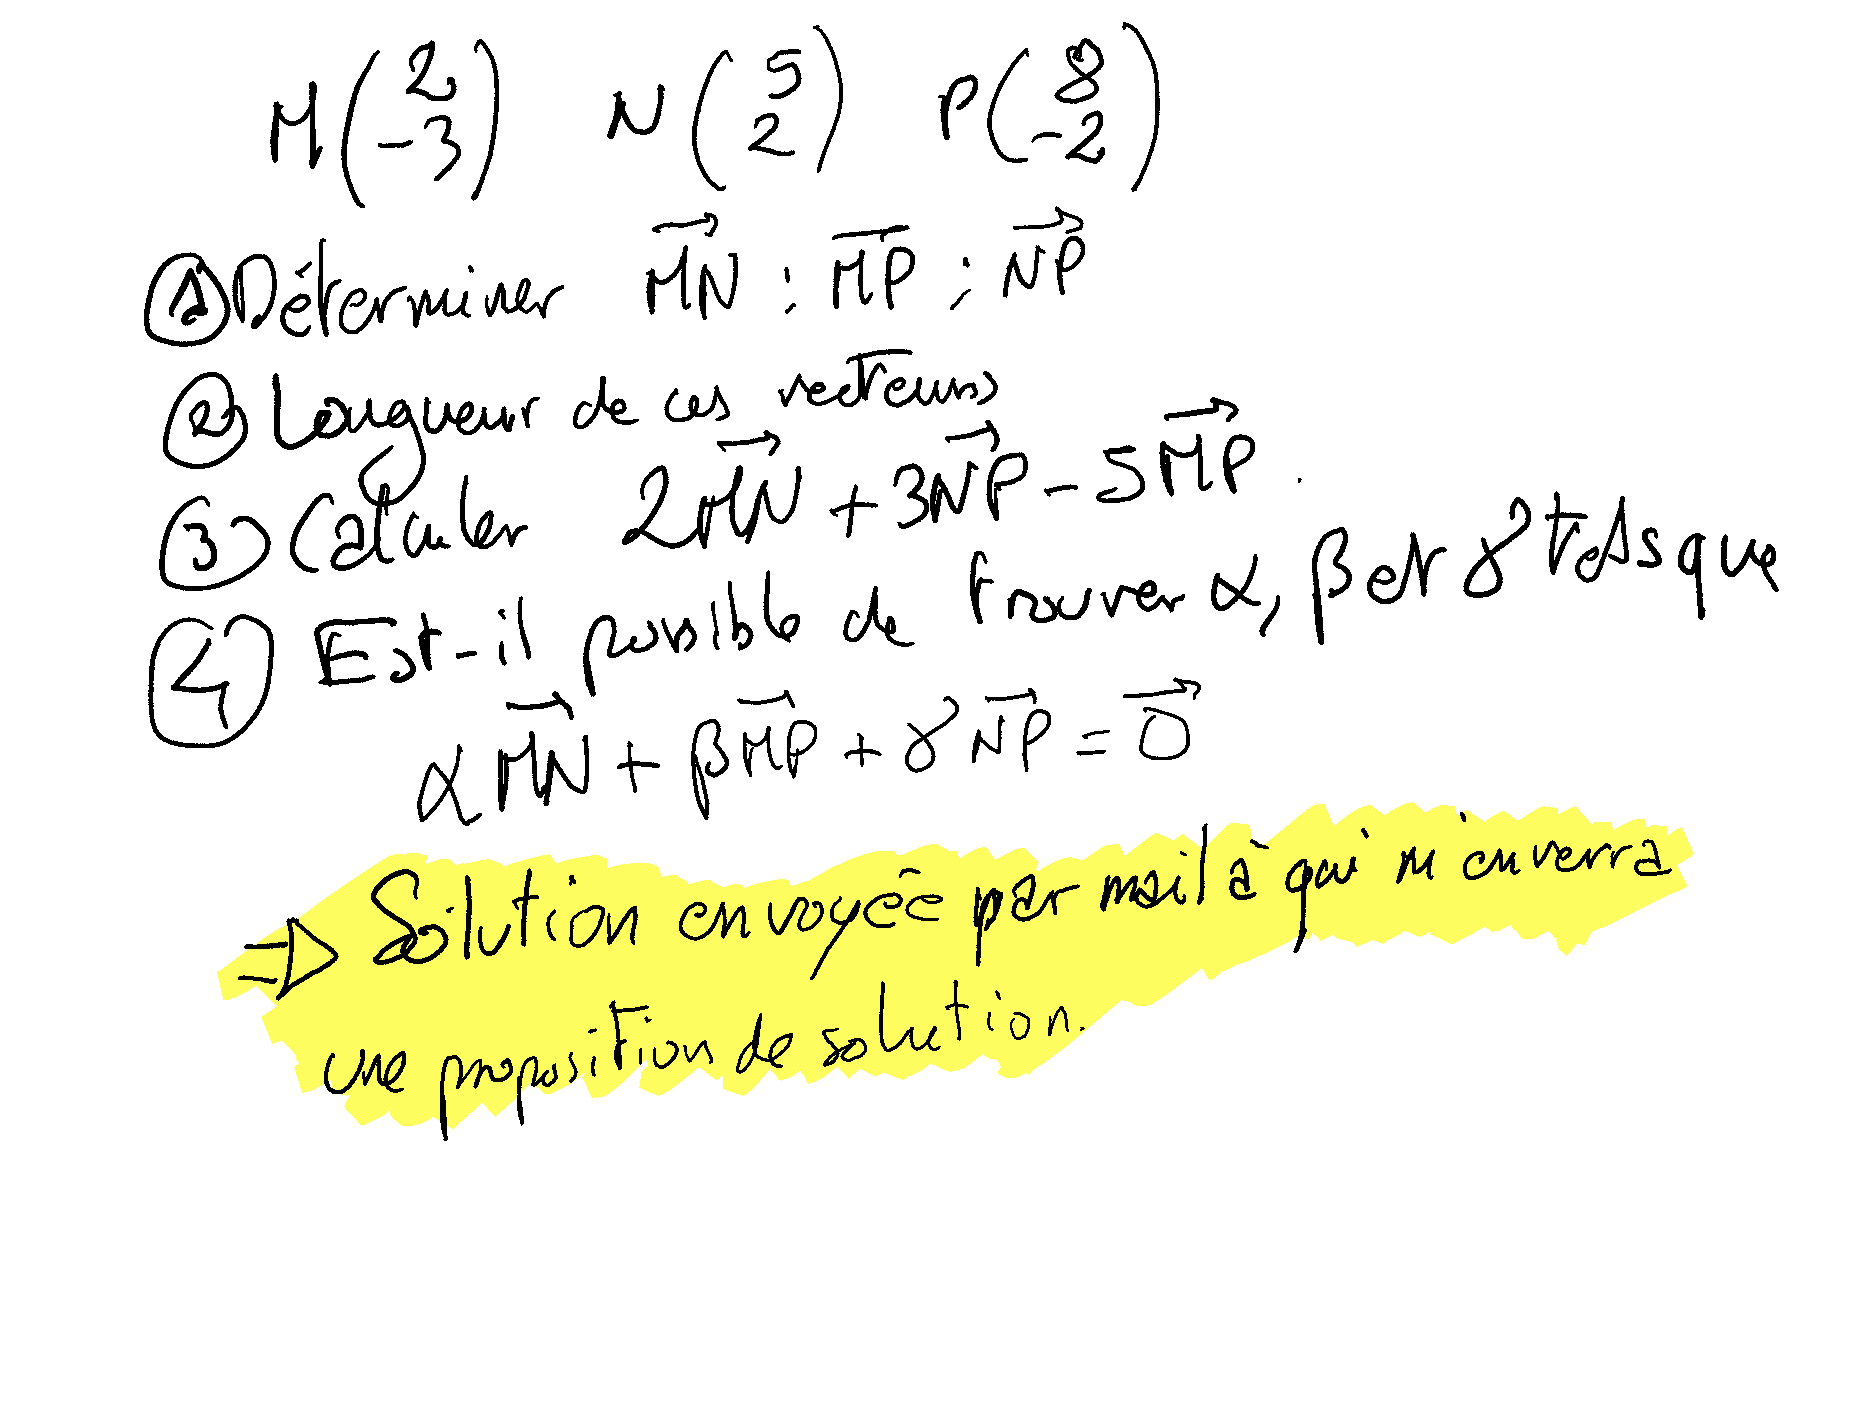 M(2 -3) N(5 2) P(8 -2)
① Déterminer MN⃗ ; MP⃗ ; NP⃗
② Longueur de ces vecteurs
③ Calculer 2MN⃗ + 3NP⃗ - 5MP⃗.
④ Est-il possible de trouver α, β et γ tels que
αMN⃗ + βMP⃗ + γNP⃗ = 0⃗
⇒ Solution envoyée par mail à qui m'enverra
une proposition de solution.